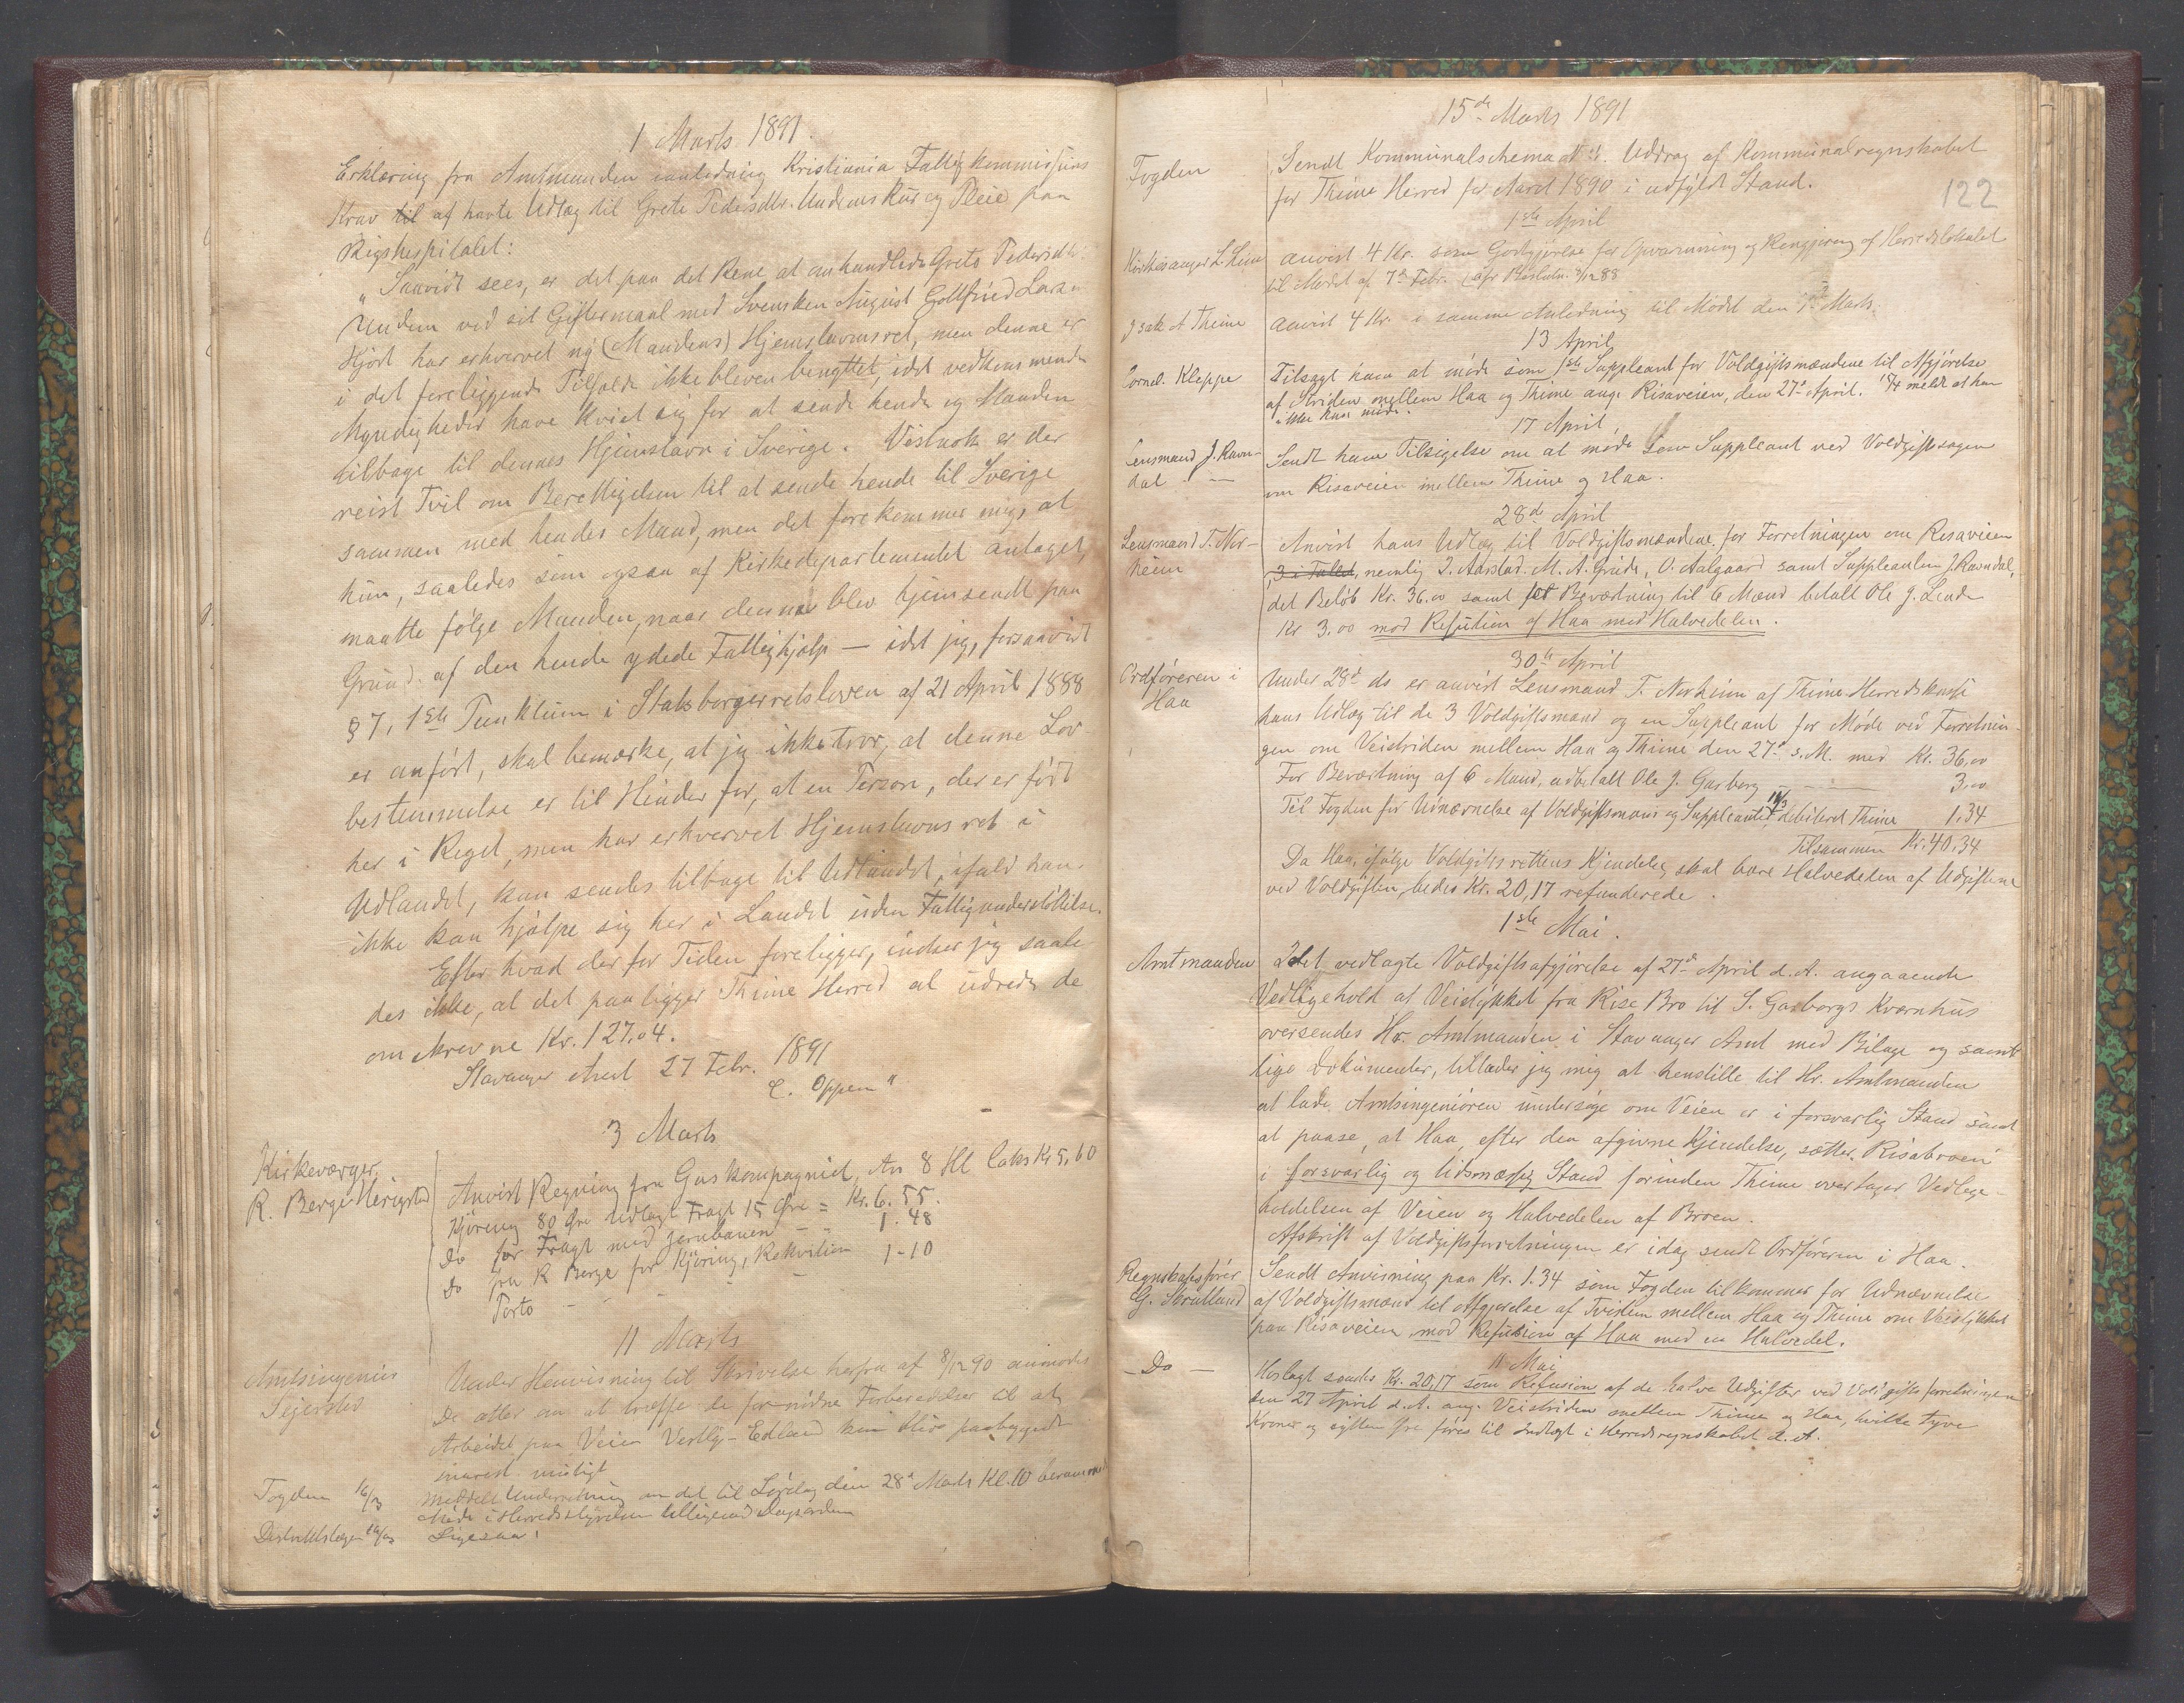 1 Marts 1891.
Erklæring fra Amtmanden i anledning Kristiania Fattigkommissions
Krav til af havte Udlæg til Grete Pedersdtr. Undems Kur og Pleie paa
Rigshospitalet:
"Saavidt sees, er det paa det Rene at omhandlede Grete Pedersdtr.
Undem ved sit Giftermaal med Svensken August Gottfried
Hjort har erhvervet ny (Mandens) Hjemstavnsret, men denne er
i det foreliggende Tilfælde ikke bleven benyttet, idet vedkommende
Myndigheder have kviet sig for at sende hende og Manden
tilbage til dennes Hjemstavn i Sverige. Vistnok er der
reist Tvil om Berettigelsen til at sende hende til Sverige
sammen med hendes Mand, men det forekommer mig, at
hun, saaledes som ogsaa af Kirkedepartementet antaget,
maatte følge Manden, naar denne blev hjemsendt paa
Grund af den hende ydede Fattighjælp — idet jeg, forsaavidt
§ 7, 1ste Punktum i Statsborgerretsloven af 21 April 1888
er anført, skal bemærke, at jeg ikke tror, at denne Lov
bestemmelse er til Hinder for, at en Person, der er født
her i Riget, men har erhvervet Hjemstavnsret i
Udlandet, kan sendes tilbage til Udlandet, ifald han
ikke kan hjælpe sig her i Landet uden Fattigunderstøttelse.
Efter hvad der for Tiden foreligger, indser jeg saale
des ikke, at det paaligger Thime Herred at udrede de
omskrevne Kr. 127.04.
Stavanger Amt 27 Febr. 1891
C. Oppen"
3 Marts
Kirkeværger
R. Berge Herigstad
Anvist Regning fra Gaskompagniet, 8 Hl Coks Kr 5,60
Kjøring 80 Øre Udlagt Fragt 15 Øre = Kr. 6.55.
Do for Fragt med Jernbanen - - 1.48
Do fra R Berge for Kjøring, Rekvisition 1-10
Porto - - - -
11 Marts
Amtsingeniør
Sejersted
Under Henvisning til Skrivelse herfra af 8/12 90 anmodes
De atter om at træffe de fornødne Forberedelser til at
Arbeidet paa Veien Vestly-Edland kan blive paabegyndt
snarest muligt
Fogden 16/3
Meddelt Underretning om det til Lørdag den 28de Marts Kl. 10 berammede
Møde i Herredsstyrelsen tilligemed Dagsorden
Distriktslægen 16/3
Ligesaa!
15de Marts 1891
122
Fogden
Sendt Kommunalschema No 1. Uddrag af Kommunalregnskabet
for Thime Herred for Aaret 1890 i udfyldt Stand.
1ste April
Kirkesanger L Lima
anvist 4 Kr. som Godtgjørelse for Opvarmning og Rengjøring af Herredslokalet
til Mødet af 7de Febr. (efr Beslutn. 3/12 88
Isak A Thime
anvist 4 Kr. i samme Anledning til Mødet den 7de Marts.
13 April
Cornel. Kleppe
Tilsagt ham at møde som 1ste Suppleant for Voldgiftsmændene til Afgjørelse
af Striden mellem Haa og Thime ang. Risaveien, den 27de April. meldt at han
ikke kan møde.
17 April
Lensmand J. Ravn-
dal —
Sendt ham Tilsigelse om at møde som Suppleant ved Voldgiftssagen
om Risaveien mellem Thime og Haa.
28de April
Lensmand T. Nor-
heim
Anvist hans Udlæg til Voldgiftsmændene for Forretningen om Risaveien
3 i Tallet, nemlig I. Aarstad. M. A. Grude, O. Aalgaard samt Suppleanten J. Ravndal,
det Beløb Kr. 36.00 samt for Bevertning til 6 Mænd betalt Ole J. Lende
Kr 3.00 mod Refusion af Haa med Halvedelen.
30te April
Ordføreren i
Haa
Under 28de ds er anvist Lensmand T. Norheim af Thime Herredskasse
hans Udlæg til de 3 Voldgiftsmænd og en Suppleant for Møde ved Forretnin-
gen om Veistriden mellem Haa og Thime den 27de s. M. med Kr. 36.00
For Bevertning af 6 Mænd, udbetalt Ole J. Garborg — — 3.00
Til Fogden for Udnævnelse af Voldgiftsmænd og Suppleanter debiteret Thime 1.34
Tilsammen Kr. 40.34
Da Haa, ifølge Voldgiftsrettens Kjendelse skal bære Halvedelen af Udgifterne
ved Voldgiften, bedes Kr. 20,17 refunderede.
1ste Mai.
Amtmanden
Idet vedlagte Voldgiftsafgjørelse af 27de April d.A. angaaende
Vedligehold af Veistykket fra Rise Bro til S. Garborgs Kværnhus
oversendes Hr. Amtmanden i Stavanger Amt med Bilage og samt
lige Dokumenter, tillader jeg mig at henstille til Hr. Amtmanden
at lade Amtsingeniøren undersøge om Veien er i forsvarlig Stand samt
at paase, at Haa, efter den afgivne Kjendelse, sætter Risabroen
i forsvarlig og lidsmæssig Stand forinden Thime overtager Vedlige-
holdelsen af Veien og Halvedelen af Broen.
Afskrift af Voldgiftsforretningen er idag sendt Ordføreren i Haa.
Regnskabsfører
G. Skretland
Sendt Anvisning paa Kr. 1.34 som Fogden tilkommer for Udnævnelse
af Voldgiftsmænd til Afgjørelse af Tvisten mellem Haa og Thime om Veistykket
paa Risaveien mod Refusion af Haa med en Halvdel.
11 Mai
— Do —
Hoslagt sendes Kr. 20,17 som Refusion af de halve Udgifter ved Voldgiftsforretningen
den 27 April d.A. ang. Veistriden mellem Thime og Haa, hvilke tyve
Kroner og sytten Øre føres til Indtægt i Herredsregnskabet d. A.